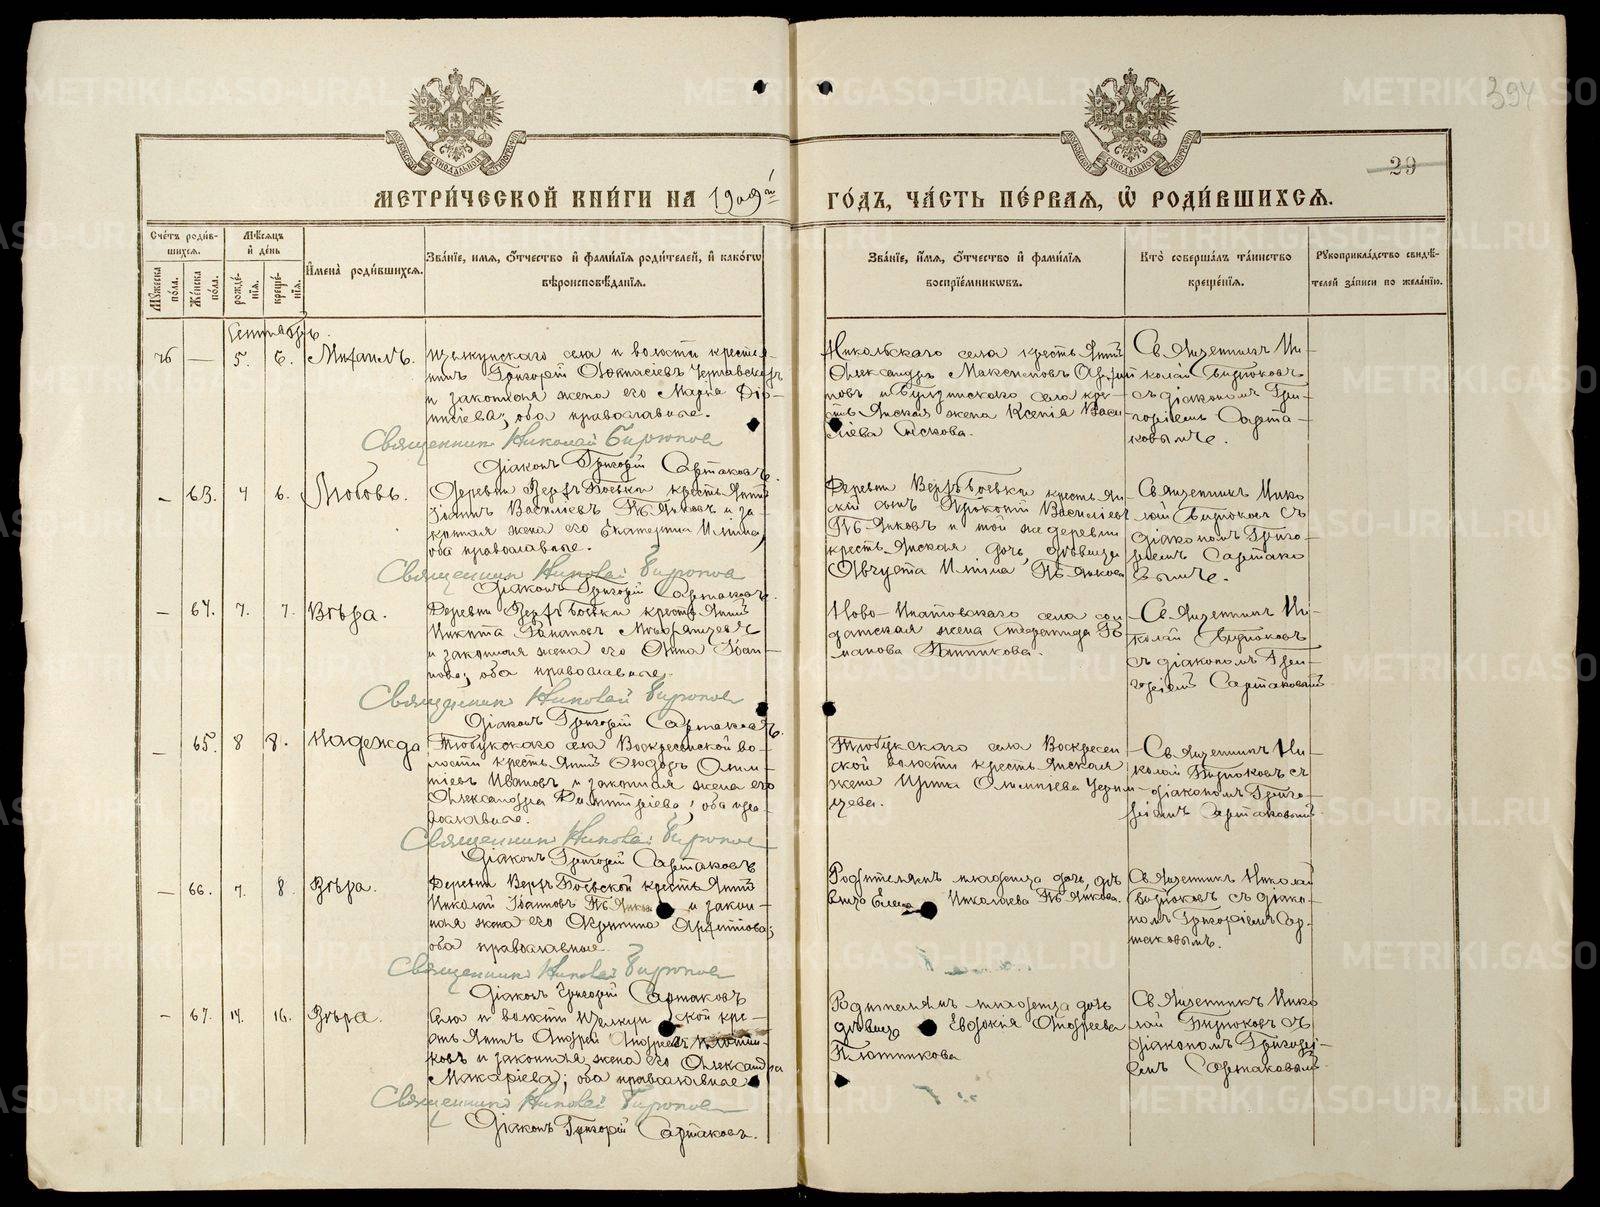 394
29
МЕТРИ́ЧЕСКОЙ КНИ́ГИ НА 1909й ГО́ДЪ, ЧА́СТЬ ПЕ́РВАЯ, Ѽ РОДИ́ВШИХСЯ.
Сче́тъ роди́в-
шихся.
Мꙋ́жеска по́ла.
Же́нска по́ла.
Мѣ́сяцъ
и҆ де́нь
рожде́-
нія.
креще́-
нія.
И҆мена̀ роди́вшихся.
Зва́ніе, и́мя, ѻ҆́тчество и҆ фами́лія роди́телей, и҆ како́гѡ
вѣроисповѣ́данія.
Зва́ніе, и́мя, ѻ҆́тчество и҆ фами́лія
воспріе́мникѡвъ.
Кто̀ соверша́лъ та́инство
креще́нія.
Рꙋкоприкла́дство свидѣ́-
телей за́писи по жела́нію.
Сентябрь.
76 — 5. 6. Михаилъ.
Щелкунскаго села и волости крестья-
нинъ Григорій
и законная жена его Марѳа Діо-
нисіева; оба православные.
Священникъ Николай Бирюков
Діаконъ Григорій Сартаковъ.
Никольскаго села крестьянинъ
Александръ Максимовъ
села кре-
стьянская жена Ксенія Васи-
ліева
Священникъ Ни-
колай Бирюковъ
съ діакономъ Гри-
горіемъ Сарта-
ковымъ.
— 63. 4 6. Любовь.
Деревни Верхъ-Боевки крестьянинъ
Іоаннъ Василіевъ Пьянковъ и за-
конная жена его Екатерина Ильина,
оба православные.
Священник Николай Бирюков
Діаконъ Григорій Сартаковъ.
Деревни Верхъ-Боевки крестьян-
скій сынъ Прокопій Василіевъ
Пьянковъ и той же деревни
крестьянская дочь, дѣвица
Августа Ильина Пьянкова
Священникъ Нико-
лай Бирюковъ съ
діакономъ Григо-
ріемъ Сартако-
вымъ.
— 64. 7. 7. Вѣра.
Деревни Верхъ-Боевки крестьянинъ
Никита
и законная жена его Анна Іоан-
нова; оба православные.
Священник Николай Бирюков
Діаконъ Григорій Сартаковъ.
Ново-Ипатовскаго села сол-
датская жена
Священникъ Ни-
колай Бирюковъ
съ діакономъ Гри-
горіемъ Сартаковымъ
— 65. 8 8. Надежда
Тюбукскаго села Воскресенской во-
лости крестьянинъ Ѳеодоръ
Ивановъ и законная жена его
Александра Димитріева; оба пра-
вославные.
Священник Николай Бирюков
Діаконъ Григорій Сартаковъ
Тюбукскаго села Воскресен-
ской волости крестьянская
жена Ирина
Священникъ Ни-
колай Бирюковъ съ
діакономъ Григо-
ріемъ Сартаковымъ
— 66. 7. 8. Вѣра.
Деревни Верхъ-Боевской крестьянинъ
Николай Іоанновъ Пьянков и закон-
ная жена его
оба православные.
Священник Николай Бирюков
Діаконъ Григорій Сартаковъ
Родителямъ младенца дочь, дѣ-
вица Елена Николаева Пьянкова.
Священникъ Николай
Бирюковъ съ діако-
номъ Григоріемъ Сар-
таковымъ.
— 67. 14. 16. Вѣра.
Села и волости Щелкунской кре-
стьянинъ Андрей Андреевъ Плотни-
ковъ и законная жена его Александра
Макаріева; оба православные
Священник Николай Бирюков
Діаконъ Григорій Сартаковъ.
Родителямъ младенца дочь
дѣвица Евдокія Андреева
Плотникова
Священникъ Нико-
лай Бирюковъ съ
діакономъ Григорі-
емъ Сартаковымъ
METRIKI.GASO-URAL.RU